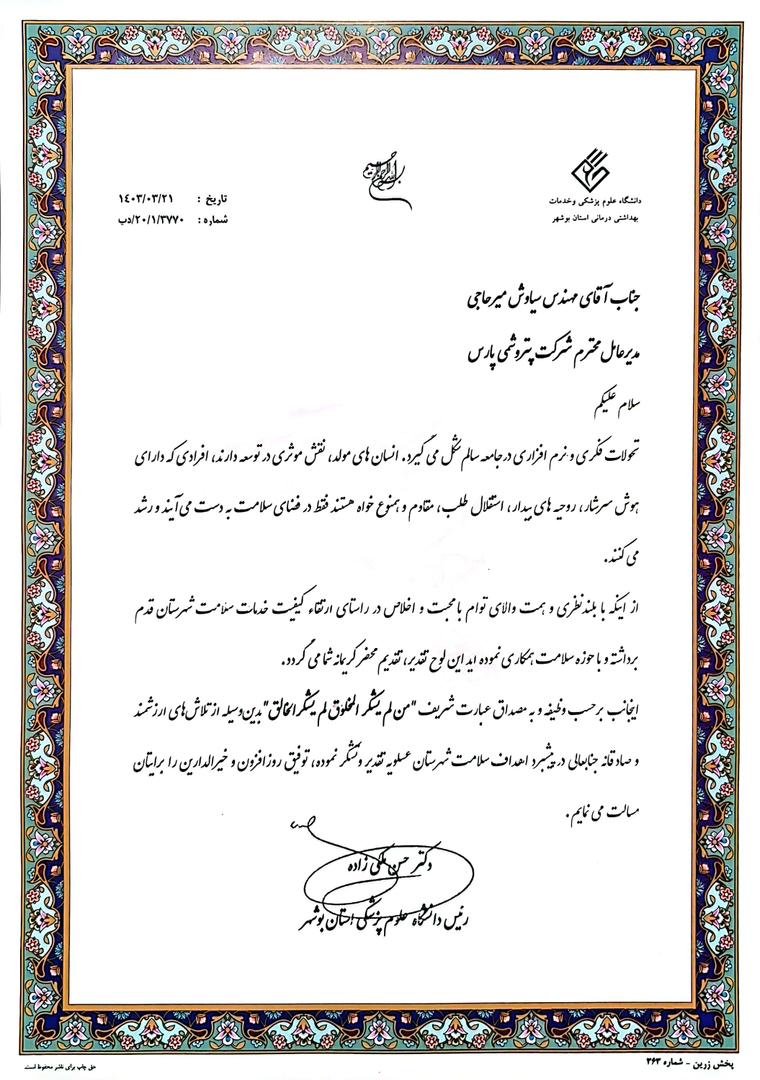 بسم الله الرحمن الرحیم
دانشگاه علوم پزشکی وخدمات
بهداشتی درمانی استان بوشهر
تاریخ : ۱٤۰۳/۰۳/۲۱
شماره : ۲۰/۱/۳۷۷۰/دب
جناب آقای مهندس سیاوش میرحاجی
مدیرعامل محترم شرکت پتروشیمی پارس
سلام علیکم
تحولات فکری و نرم افزاری در جامعه سالم شکل می گیرد. انسان های مولد، نقش موثری در توسعه دارند، افرادی که دارای
هوش سرشار، روحیه های بیدار، استقلال طلب، مقاوم و همنوع خواه هستند فقط در فضای سلامت به دست می‌آیند و رشد
می کنند.
از اینکه با بلندنظری و همت والای توام با محبت و اخلاص در راستای ارتقاء کیفیت خدمات سلامت شهرستان قدم
برداشته و با حوزه سلامت همکاری نموده اید این لوح تقدیر، تقدیم محضر کریمانه شما می گردد.
اینجانب برحسب وظیفه و به مصداق عبارت شریف "من لم یشکر المخلوق لم یشکر الخالق" بدین‌وسیله از تلاش‌های ارزشمند
و صادقانه جنابعالی در پیشبرد اهداف سلامت شهرستان عسلویه تقدیر و تشکر نموده، توفیق روزافزون و خیرالدارین را برایتان
مسالت می نمایم.
دکتر حسن ملکی زاده
رئیس دانشگاه علوم پزشکی استان بوشهر
پخش زرین - شماره ۳۶۳
حق چاپ برای ناشر محفوظ است.